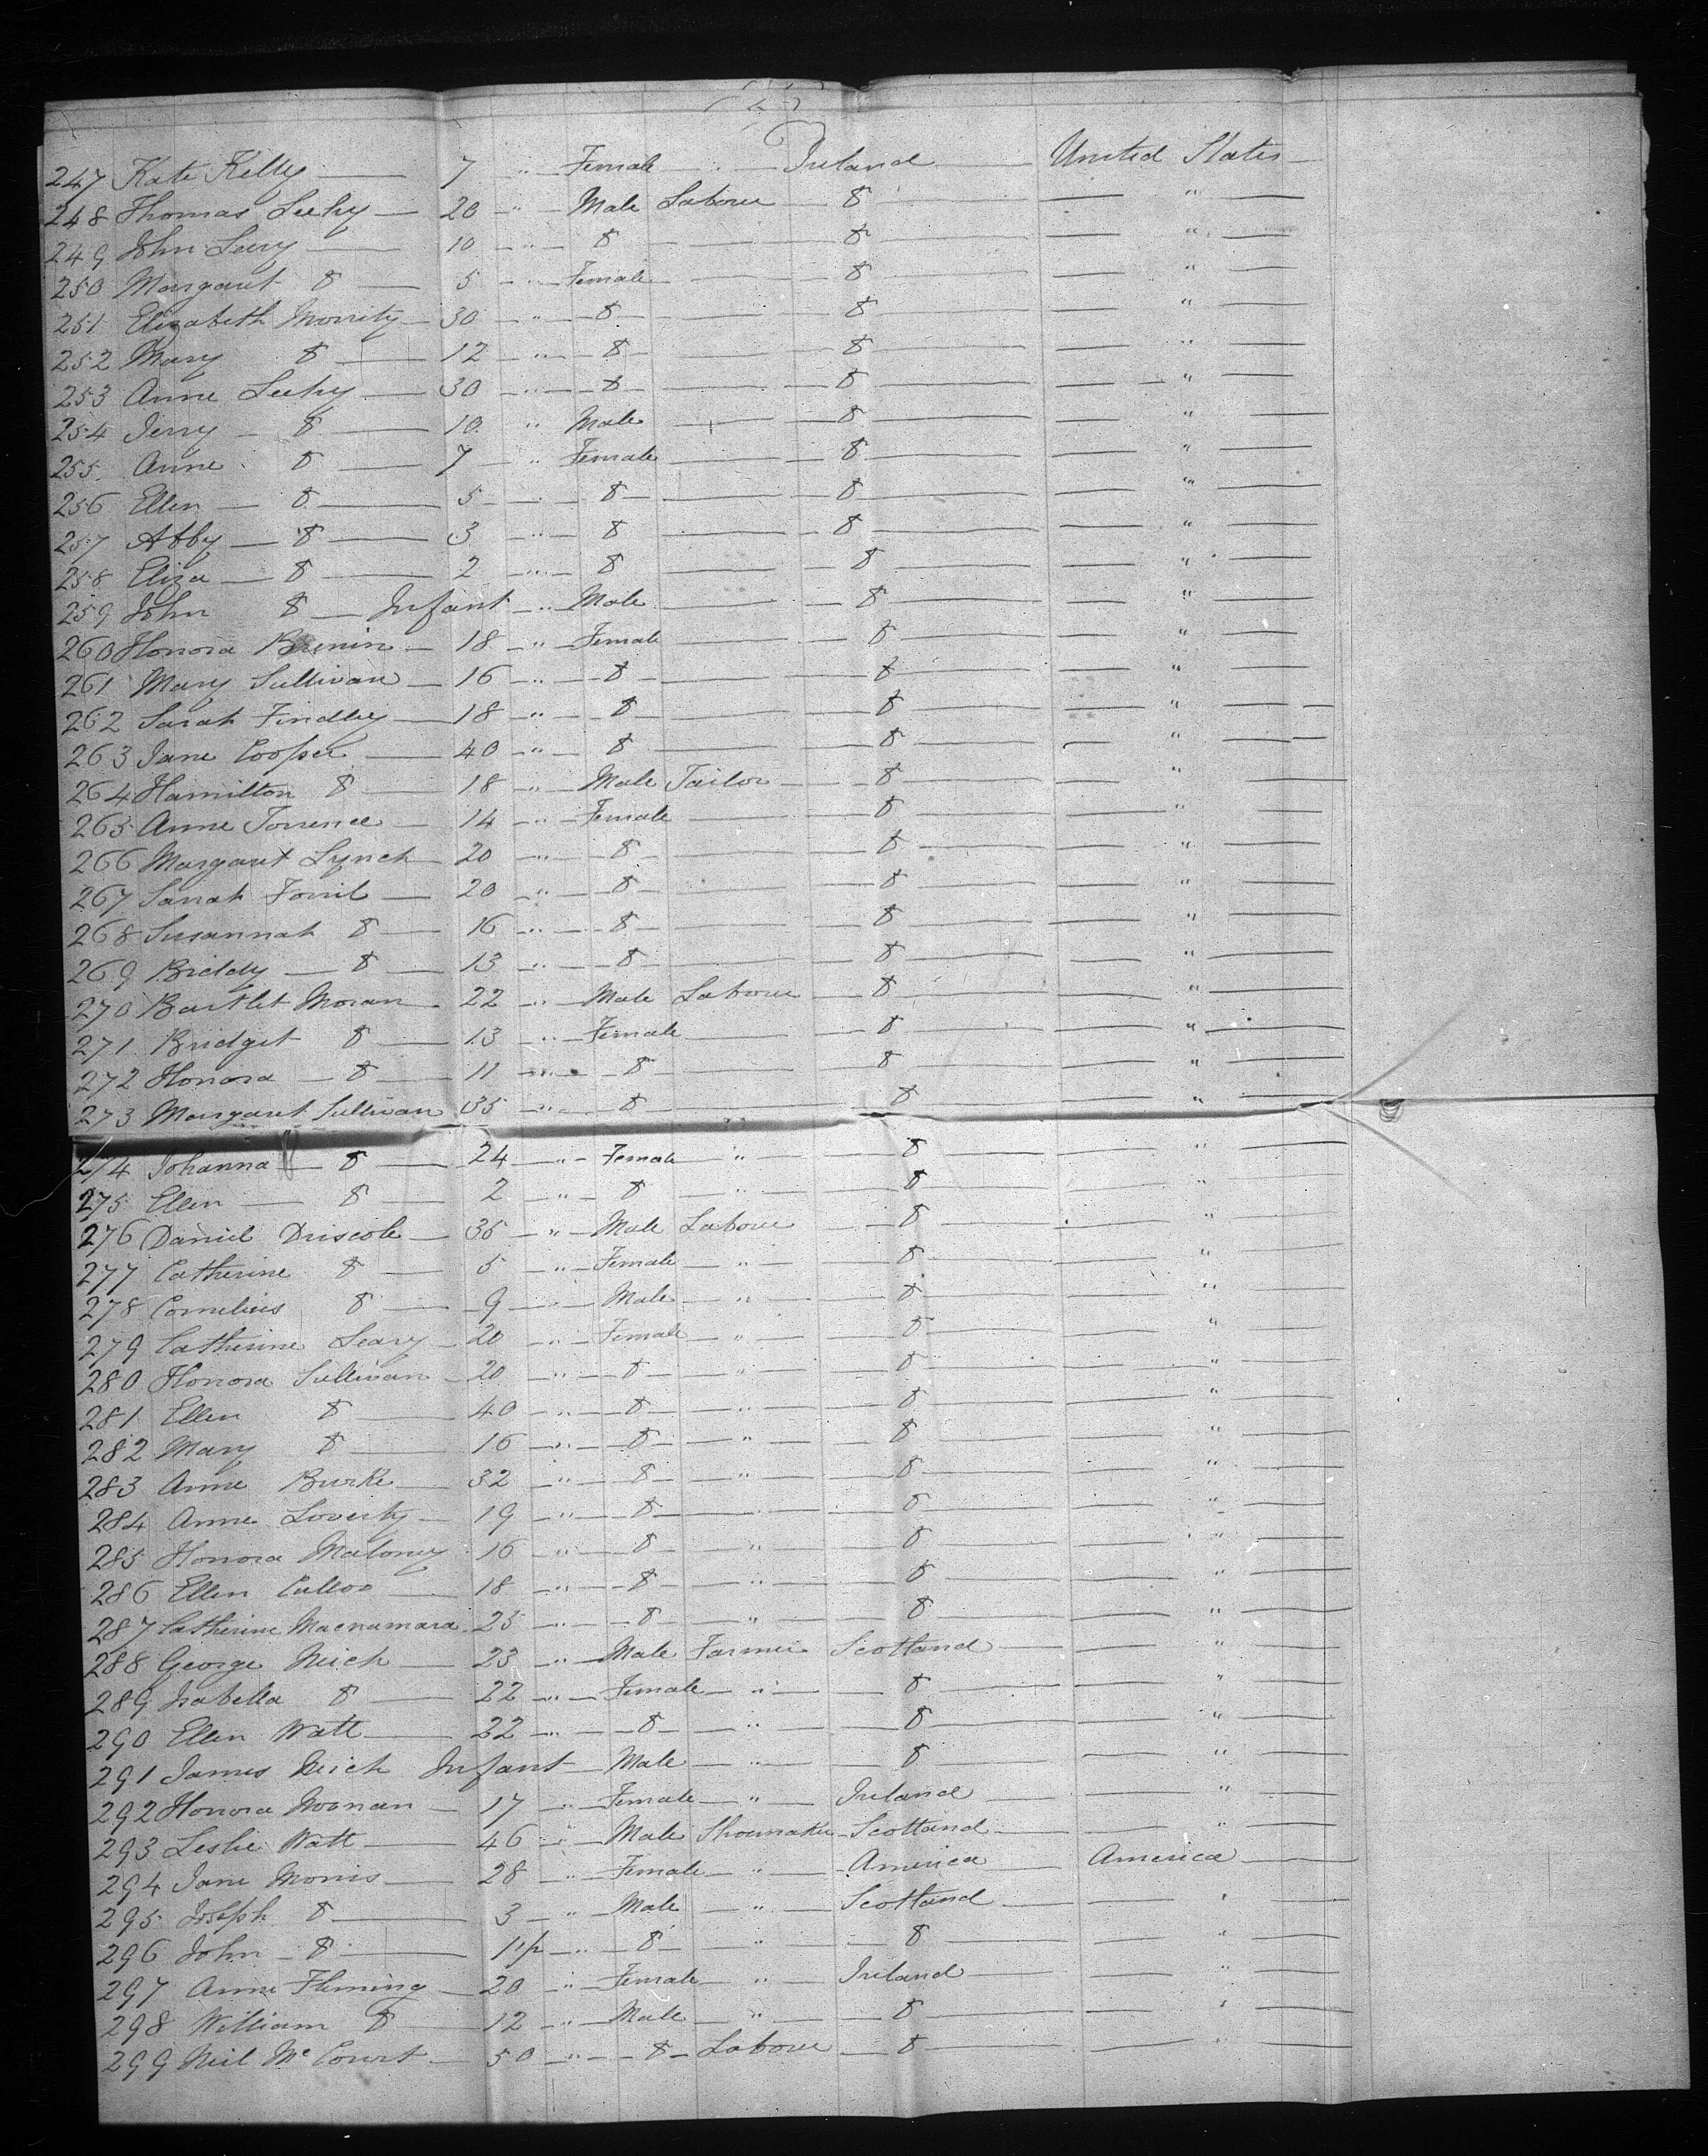 (2)
247 Kate Kelly — 7 " Female " Ireland — United States —
248 Thomas Leehy — 20 " Male Labour — do — " —
249 John Leary — 10 " do — do — " —
250 Margaret do — 5 " Female — do — " —
251 Elizabeth Morrity — 30 " do — do — " —
252 Mary do — 12 " do — do — " —
253 Anne Leehy — 30 " do — do — " —
254 Jerry do — 10 " Male — do — " —
255 Anne do — 7 " Female — do — " —
256 Ellen do — 5 " do — do — " —
257 Abby do — 3 " do — do — " —
258 Eliza do — 2 " do — do — " —
259 John do — Infant " Male — do — " —
260 Honora Brenin — 18 " Female — do — " —
261 Mary Sullivan — 16 " do — do — " —
262 Sarah Findley — 18 " do — do — " —
263 Jane Cooper — 40 " do — do — " —
264 Hamilton do — 18 " Male Tailor — do — " —
265 Anne Torrence — 14 " Female — do — " —
266 Margaret Lynch — 20 " do — do — " —
267 Sarah — 20 " do — do — " —
268 Susannah do — 16 " do — do — " —
269 Biddy do — 13 " do — do — " —
270 Bartlet Moran — 22 " Male Labour — do — " —
271 Bridget do — 13 " Female — do — " —
272 Honora do — 11 " do — do — " —
273 Margaret Sullivan 35 " do — do — " —
274 Johanna do — 24 " Female " do — " —
275 Ellen do — 2 " do " do — " —
276 Daniel Driscole — 35 " Male Labour — do — " —
277 Catherine do — 5 " Female " do — " —
278 Cornelius do — 9 " Male " do — " —
279 Catherine Leary — 20 " Female " do — " —
280 Honora Sullivan — 20 " do " do — " —
281 Ellen do — 40 " do " do — " —
282 Mary do — 16 " do " do — " —
283 Anne Burke — 32 " do " do — " —
284 Anne Loverty — 19 " do " do — " —
285 Honora Maloney 16 " do " do — " —
286 Ellen Culloo — 18 " do " do — " —
287 Catherine Macnamara 25 " do " do — " —
288 George Meich — 23 " Male Farmer Scotland — " —
289 Isabella do — 22 " Female " do — " —
290 Ellen Watt — 22 " do " do — " —
291 James Meich Infant — Male " do — " —
292 Honora Noonan — 17 " Female " Ireland — " —
293 Leslie Watt — 46 " Male Shoemaker Scotland — " —
294 Jane Morris — 28 " Female " America — America —
295 Joseph do — 3 " Male " Scotland — " —
296 John do — 1½ " do " do — " —
297 Anne Fleming — 20 " Female " Ireland — " —
298 William do — 12 " Male " do — " —
299 Neil McCourt — 50 " do Labour — do — " —